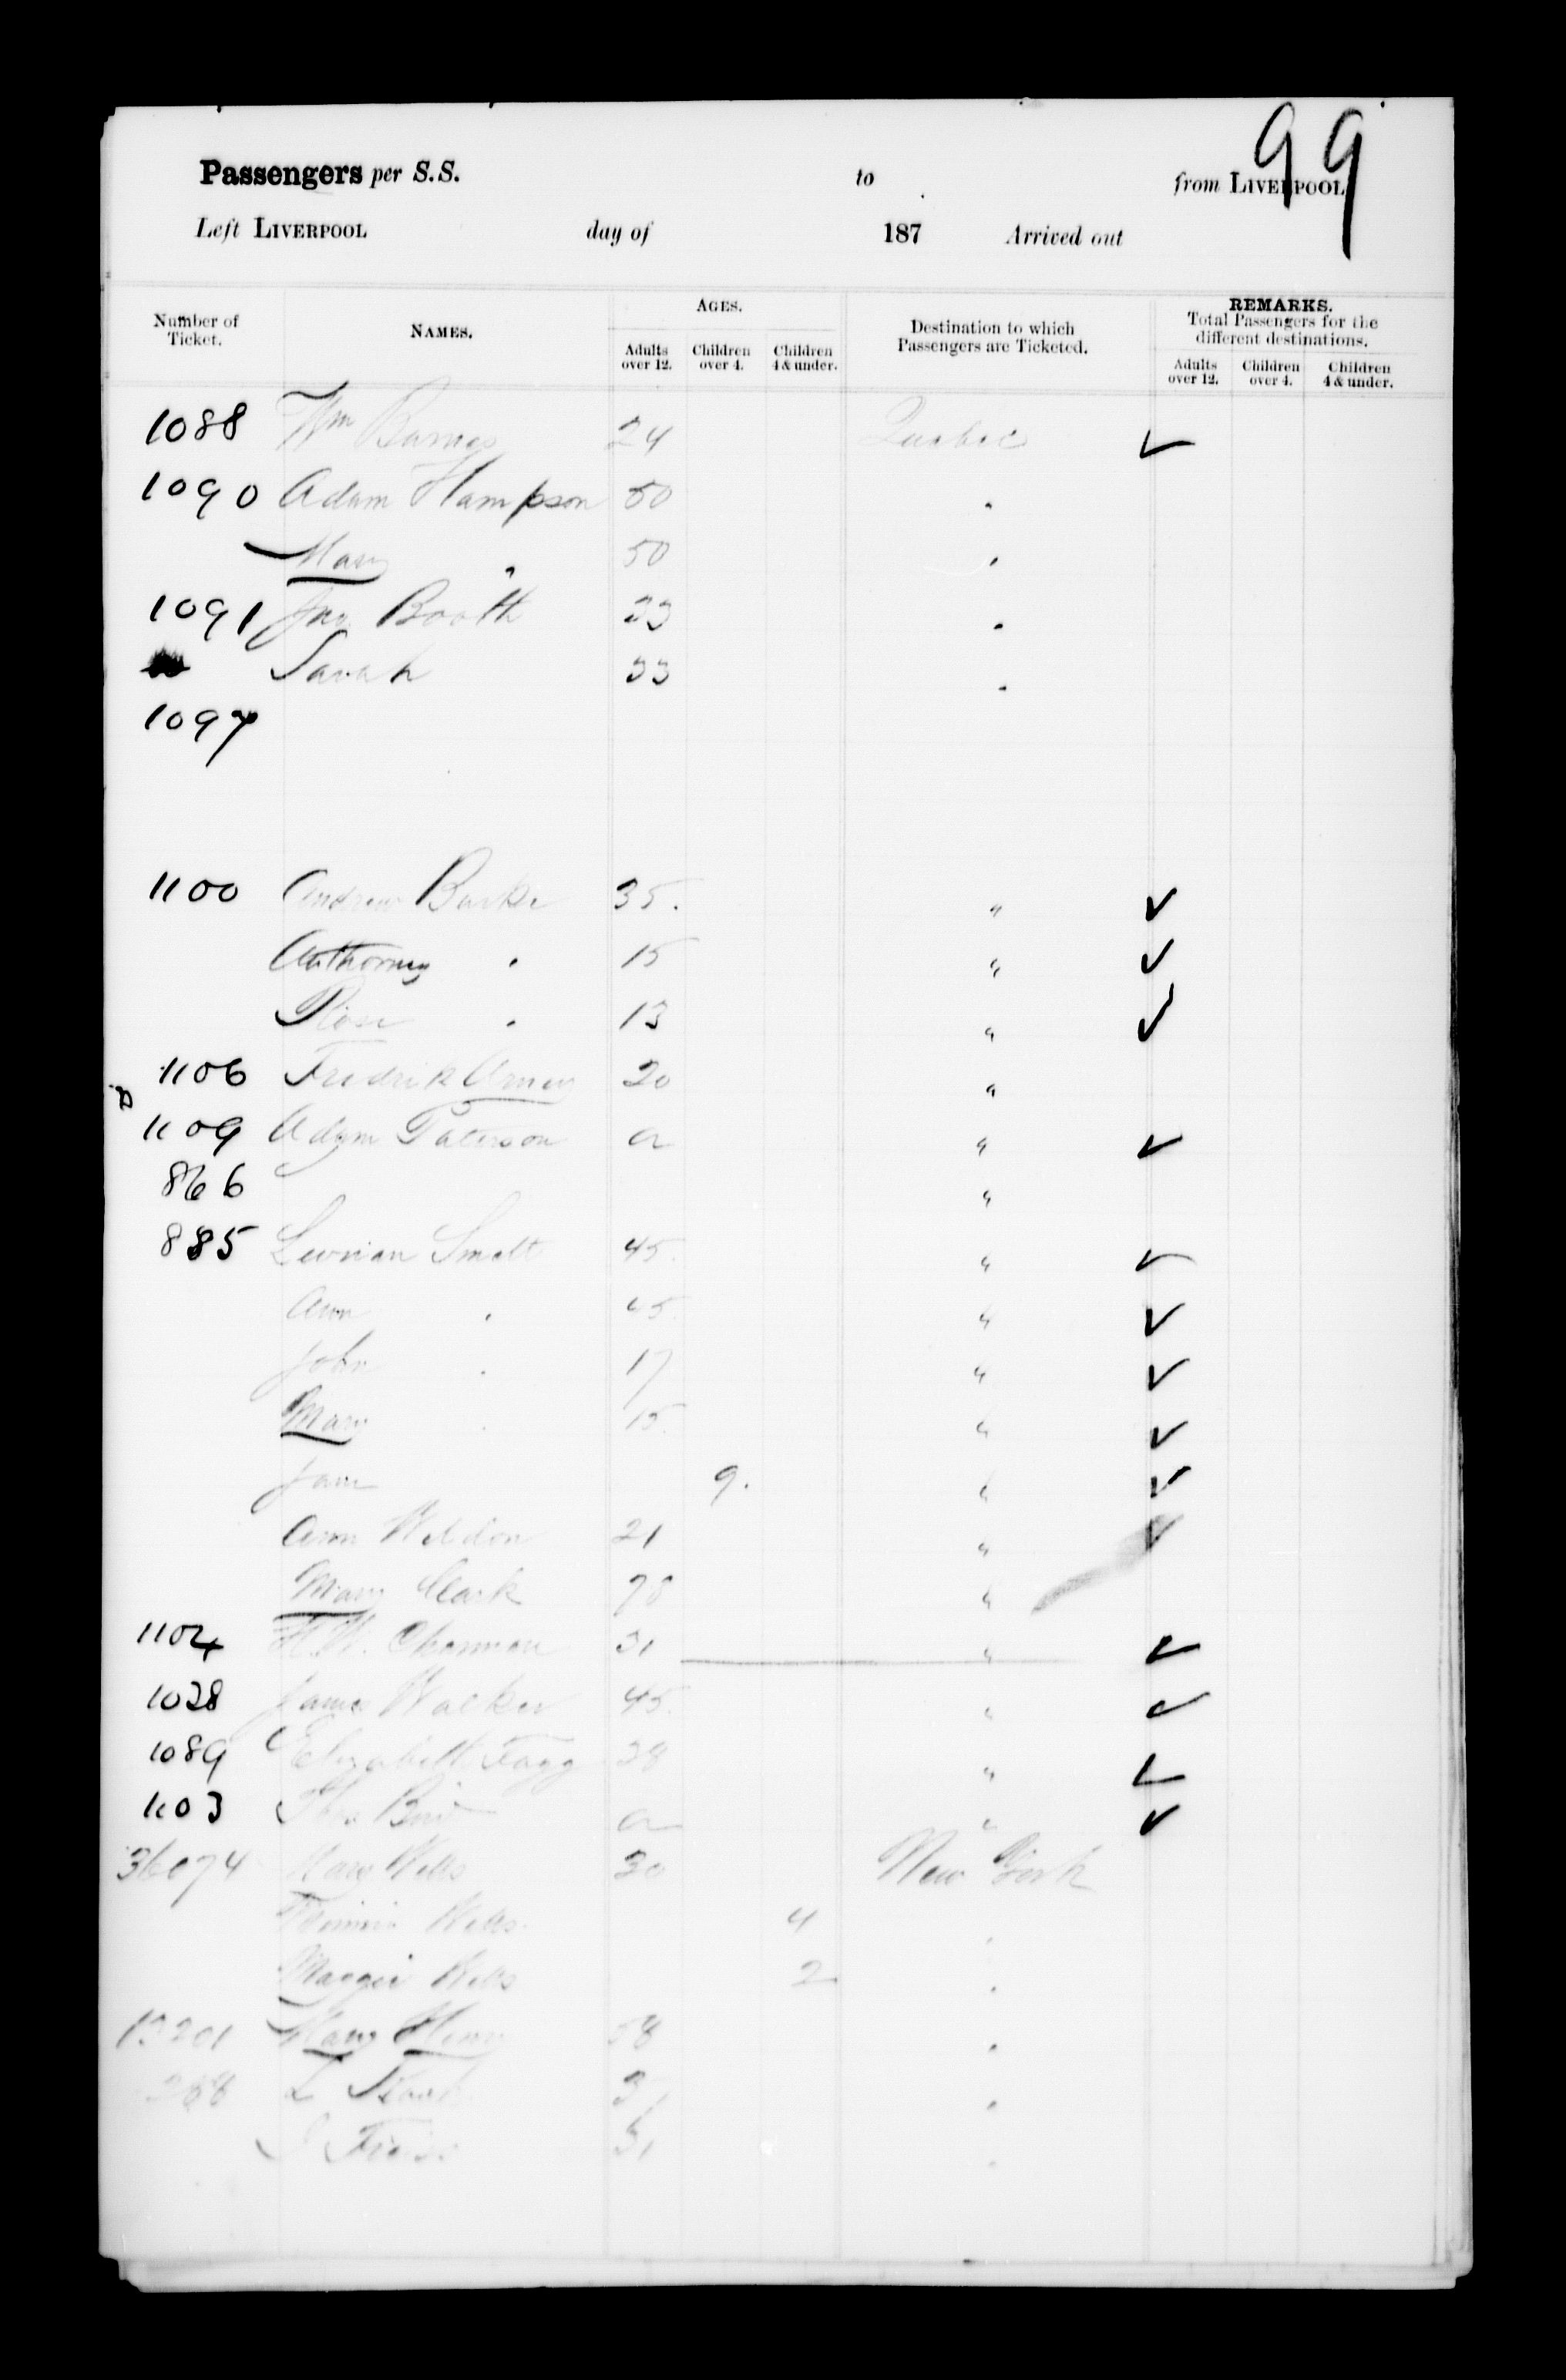 99
Passengers per S.S. to from LIVERPOOL
Left LIVERPOOL day of 187 Arrived out
Number of Ticket. NAMES. AGES. Destination to which Passengers are Ticketed. REMARKS. Total Passengers for the different destinations.
Adults over 12. Children over 4. Children 4 & under. Adults over 12. Children over 4. Children 4 & under.
1088 Wm Barnes 24 Quebec ✓
1090 Adam Hampson 50 "
Mary " 50 "
1091 Jno Booth 33 "
Sarah 33 "
1097
1100 Andrew Burke 35. " ✓
Anthony " 15 " ✓
Rose " 13 " ✓
1106 Fredrik 20 "
1109 Adam Paterson a " ✓
866 "
885 Smalt 45. " ✓
Ann " 45 " ✓
John " 17 " ✓
Mary " 15. " ✓
Jane 9. " ✓
Ann Weldon 21 " ✓
Mary Clark 78 "
1104 H.W. Charman 31 " ✓
1028 James Walker 45. " ✓
1089 Elizabeth Fagg 28 " ✓
1103 Thos a " ✓
36074 Mary Wells 30 New York
Minnie Wells 4 "
Maggie Wells 2 "
13201 Mary Henry 58 "
288 L 31 "
J 31 "